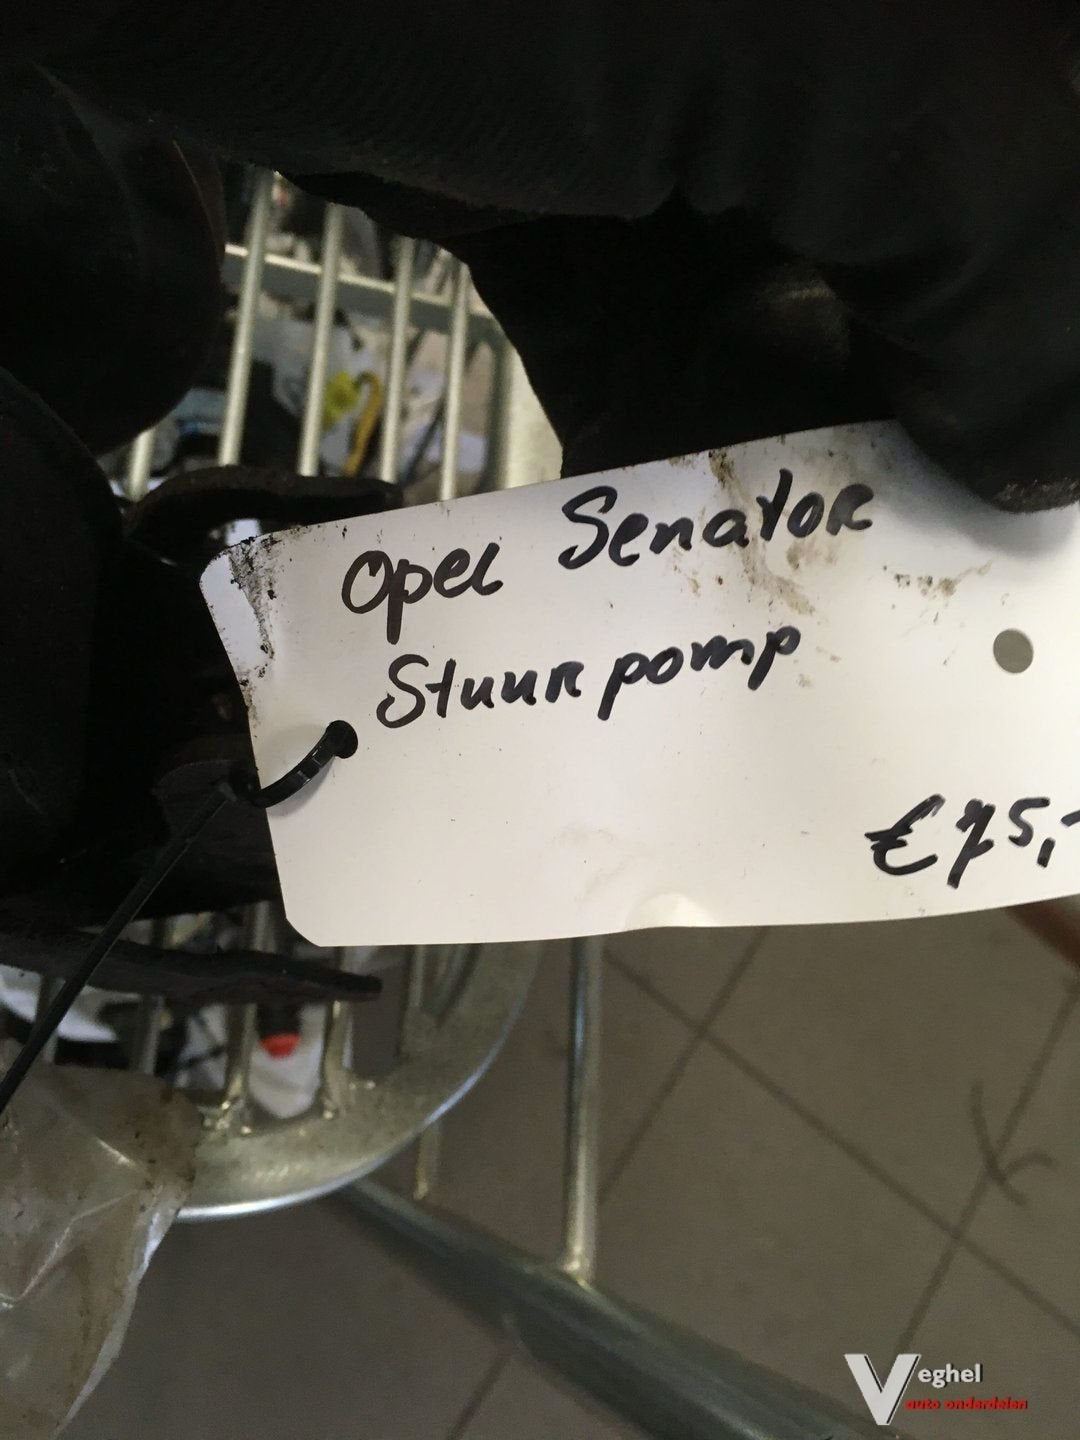 Opel Senator
Stuurpomp
€75,-
Veghel
auto onderdelen